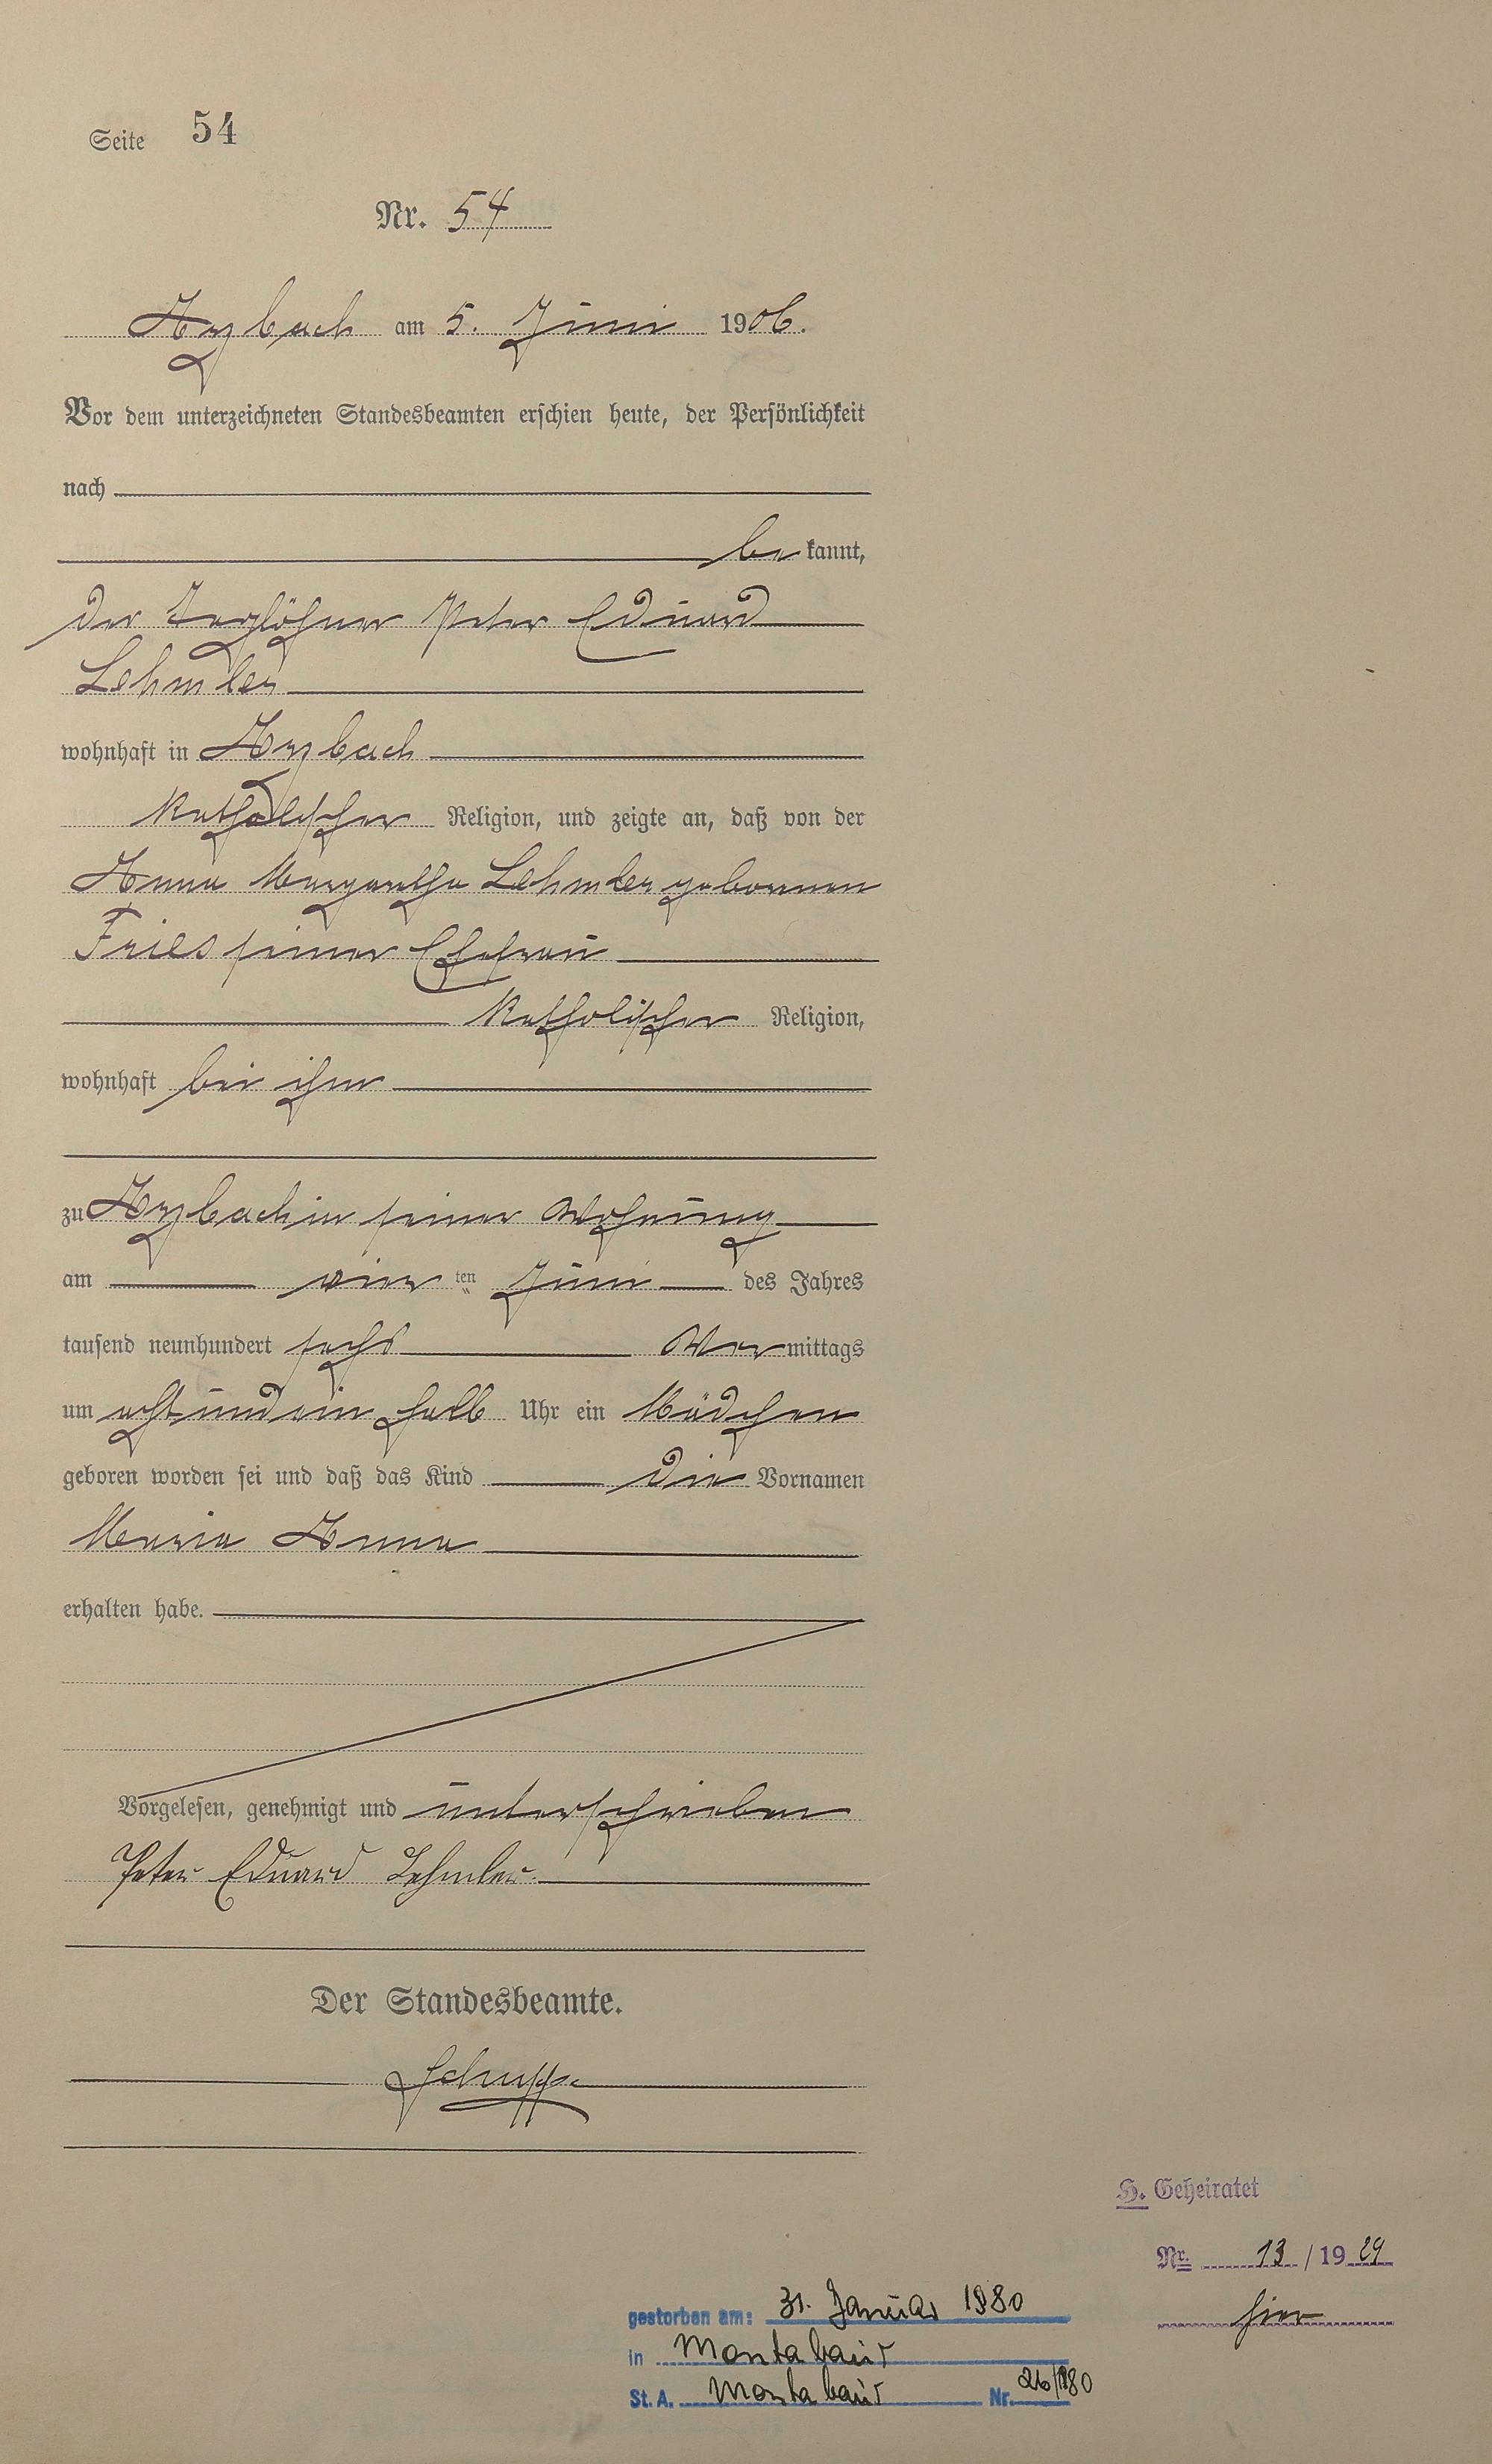 Seite 54
Nr. 54
Arzbach am 5. Juni 1906.
Vor dem unterzeichneten Standesbeamten erschien heute, der Persönlichkeit
nach
be kannt,
der Taglöhner Peter Eduard
Lehmler
wohnhaft in Arzbach
katholischer Religion, und zeigte an, daß von der
Anna Margaretha Lehmler geborenen
Fries seiner Ehefrau
katholischer Religion,
wohnhaft bei ihm
zu Arzbach in seiner Wohnung
am vier ten Juni des Jahres
tausend neunhundert sechs Vor mittags
um acht und ein halb Uhr ein Mädchen
geboren worden sei und daß das Kind die Vornamen
Maria Anna
erhalten habe.
Vorgelesen, genehmigt und unterschrieben
Peter Eduard Lehmler.
Der Standesbeamte.
Schupp
H. Geheiratet
Nr. 13 / 19 29
hier
gestorben am: 31. Januar 1980
in Montabaur
St. A. Montabaur Nr.